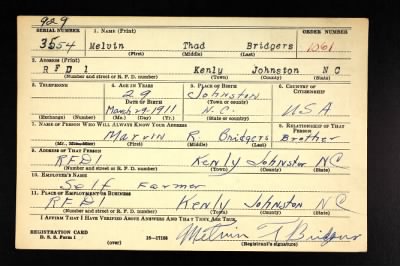 929
SERIAL NUMBER 1. NAME (Print) ORDER NUMBER
3554 Melvin Thad Bridgers 1061
(First) (Middle) (Last)
2. ADDRESS (Print)
RFD 1 Kenly Johnston NC
(Number and street or R. F. D. number) (Town) (County) (State)
3. TELEPHONE 4. AGE IN YEARS 5. PLACE OF BIRTH 6. COUNTRY OF CITIZENSHIP
29 Johnston
DATE OF BIRTH (Town or county)
March 9-1911 N.C. USA
(Exchange) (Number) (Mo.) (Day) (Yr.) (State or country)
7. NAME OF PERSON WHO WILL ALWAYS KNOW YOUR ADDRESS 8. RELATIONSHIP OF THAT PERSON
Marvin R. Bridgers Brother
(Mr., Mrs., Miss) (First) (Middle) (Last)
9. ADDRESS OF THAT PERSON
RFD1 Kenly Johnston NC
(Number and street or R. F. D. number) (Town) (County) (State)
10. EMPLOYER'S NAME
Self Farmer
11. PLACE OF EMPLOYMENT OR BUSINESS
RFD Kenly Johnston NC
(Number and street or R. F. D. number) (Town) (County) (State)
I AFFIRM THAT I HAVE VERIFIED ABOVE ANSWERS AND THAT THEY ARE TRUE.
REGISTRATION CARD
D. S. S. Form 1 (over) 16-17105 Melvin T Bridgers
(Registrant's signature)